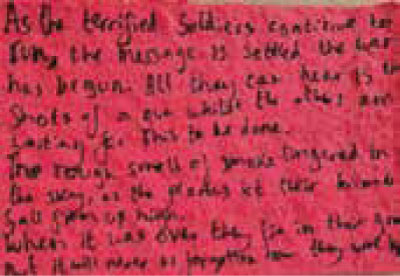 As the terrified soldiers continue to
the message is settled the war
has begun. All they can hear is the
shots of a gun whilst the others are
for this to be done.
The rough smell of smoke lingered in
the sky, as the planes let their
fall from up high.
When it was over they lie in their
but it will never be forgotten how they